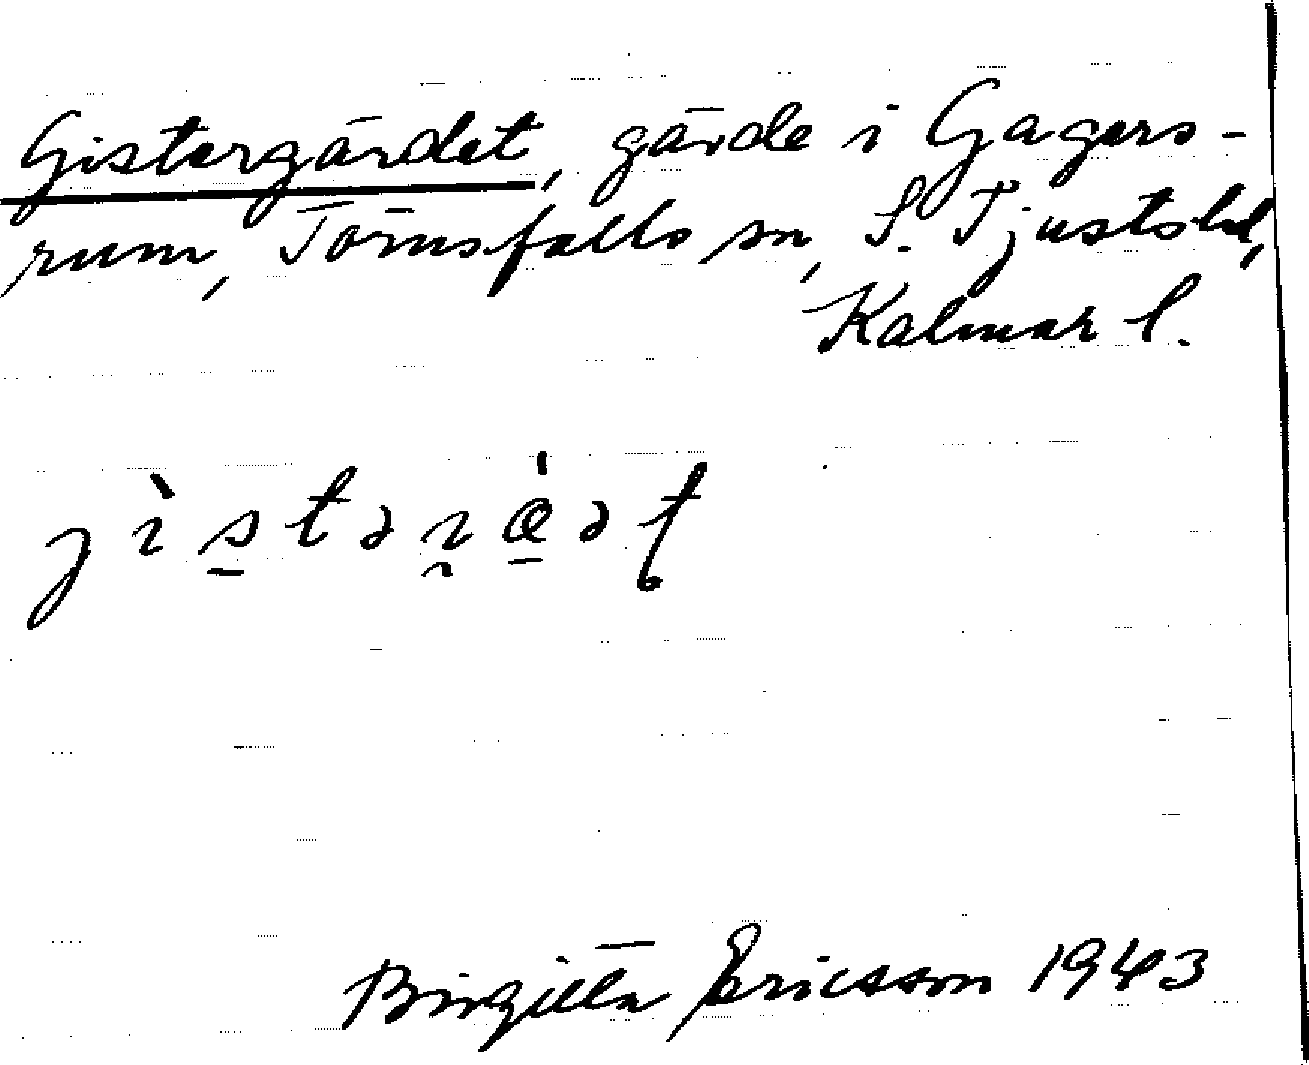 Gistergärdet, gärde i Gagers-
rum, Törnsfalls sn, S. Tjusts hd,
Kalmar l.
Birgitta Ericsson 1943